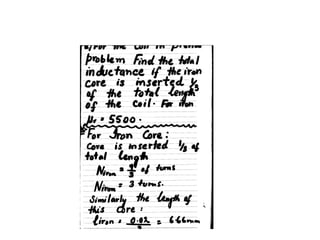 problem Find the total
inductance if the iron
core is inserted ⅓
of the total length
of the coil. For iron
μr = 5500.
For Iron Core:
Core is inserted 1/3 of
total length
Niron = 9/3 of turns
Niron = 3 turns.
Similarly the length of
this core:
liron = 0.02/3 = 6.66mm